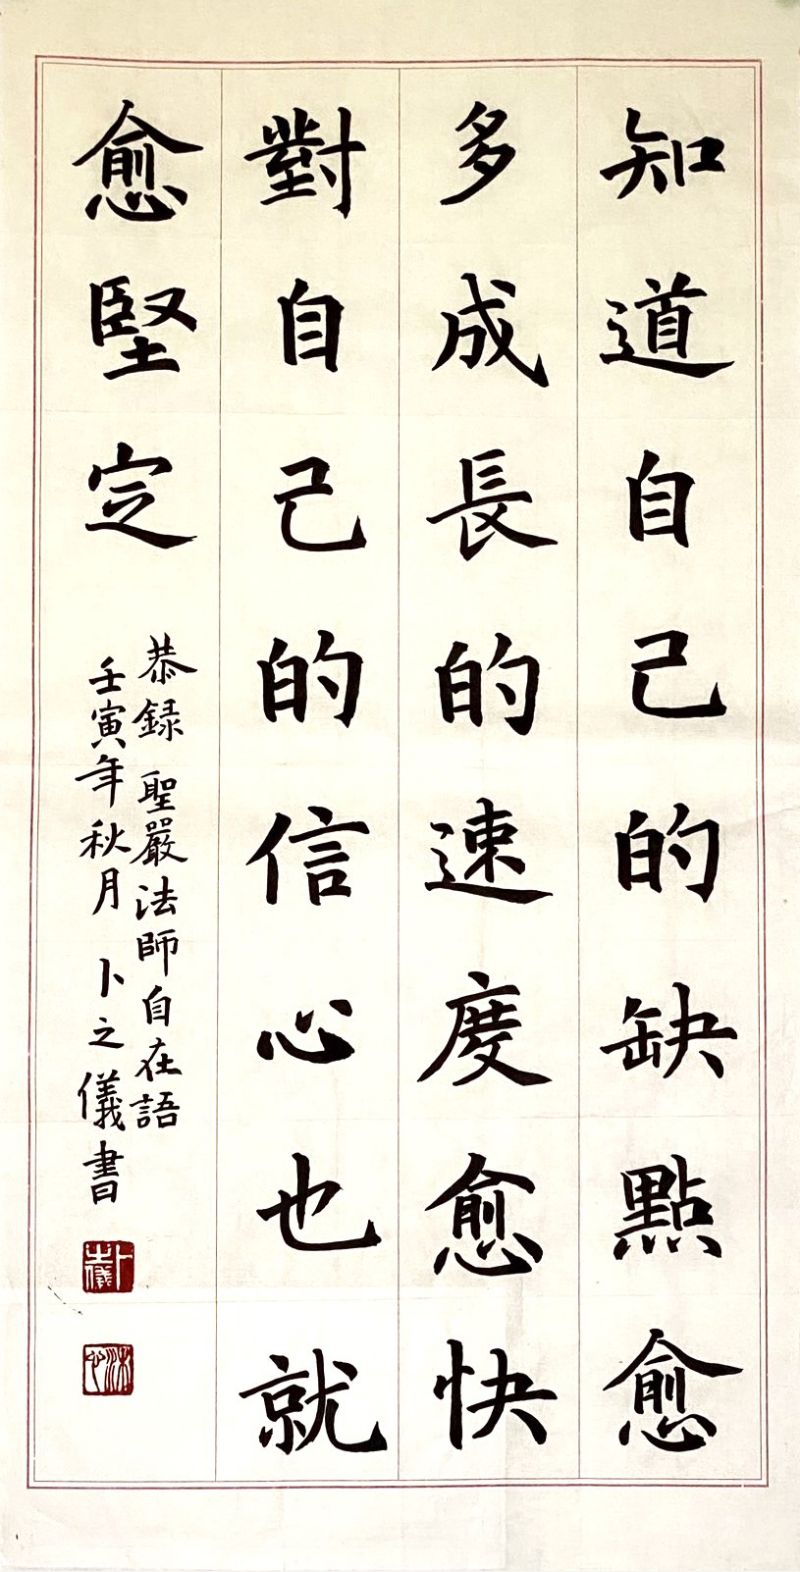 知道自己的缺點愈
多成長的速度愈快
對自己的信心也就
愈堅定
恭録 聖嚴法師自在語
壬寅年秋月 卜之儀書
卜之儀